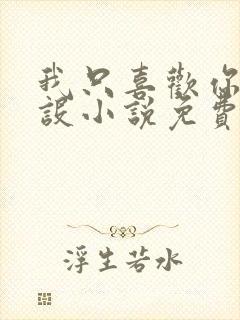 我只喜歡你
設小說免費
浮生若水